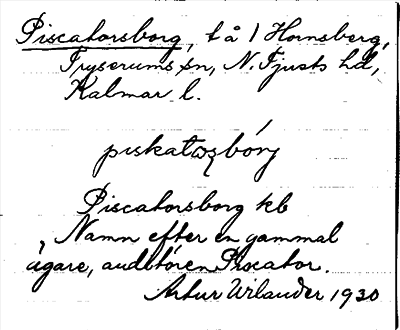 Piscatorsborg, t å 1 Hornsberg,
Tryserums sn, N. Tjusts hd,
Kalmar l.
Piscatorsborg kb
Namn efter en gammal
ägare, auditören Piscator.
Artur Urlander 1930